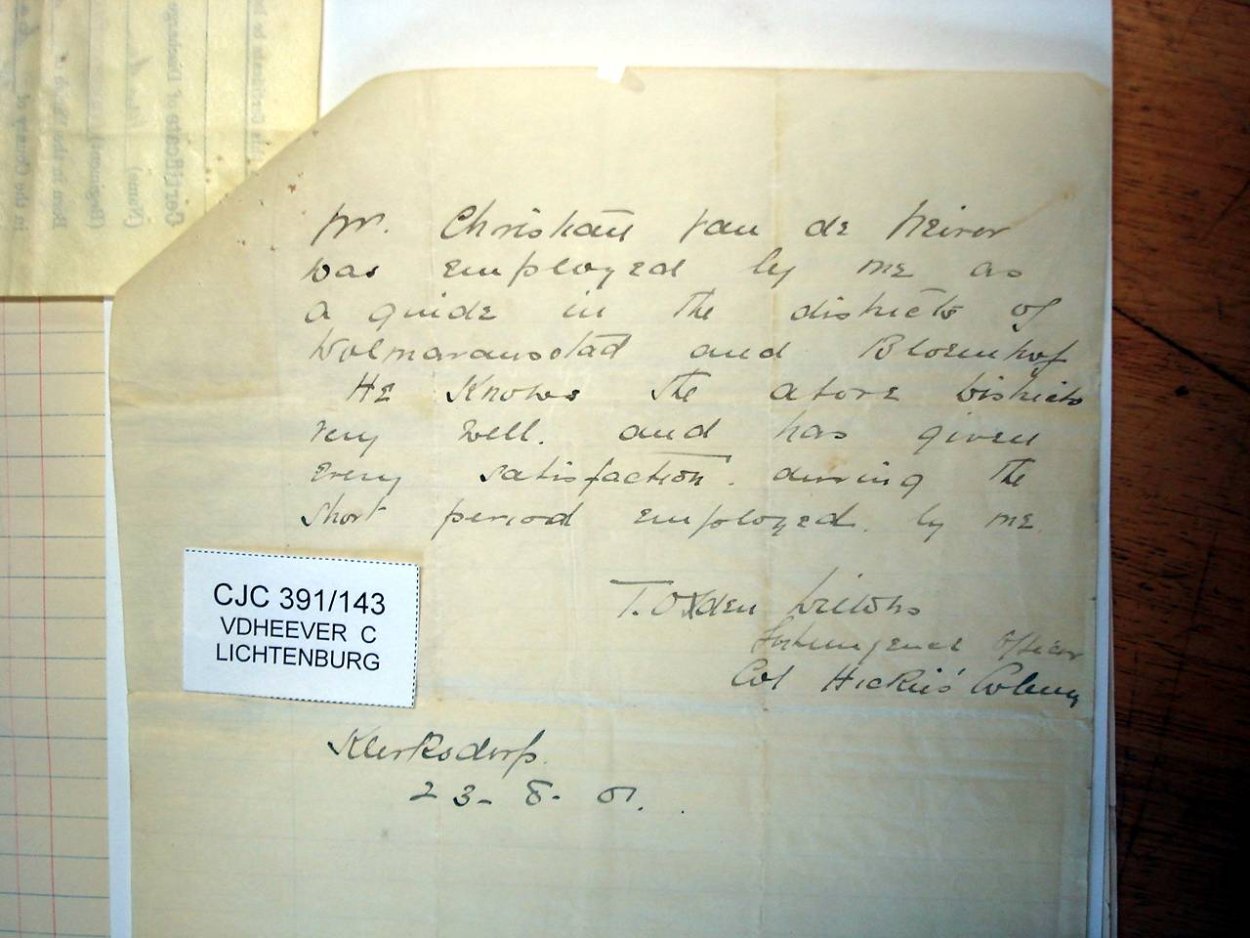 Mr. Christian van de Heiver
was employed by me as
a guide in the districts of
Wolmaransstad and Bloemhof
He Knows the above Districts
very well. and has given
every satisfaction. during the
short period employed. by me
T. Ogden
Intelligence Officer
Col Hickie's Column
Klerksdorp.
23- 8- 01.
CJC 391/143
VDHEEVER C
LICHTENBURG
Certificate of Discharge
(Name)
(Regiment)
in the